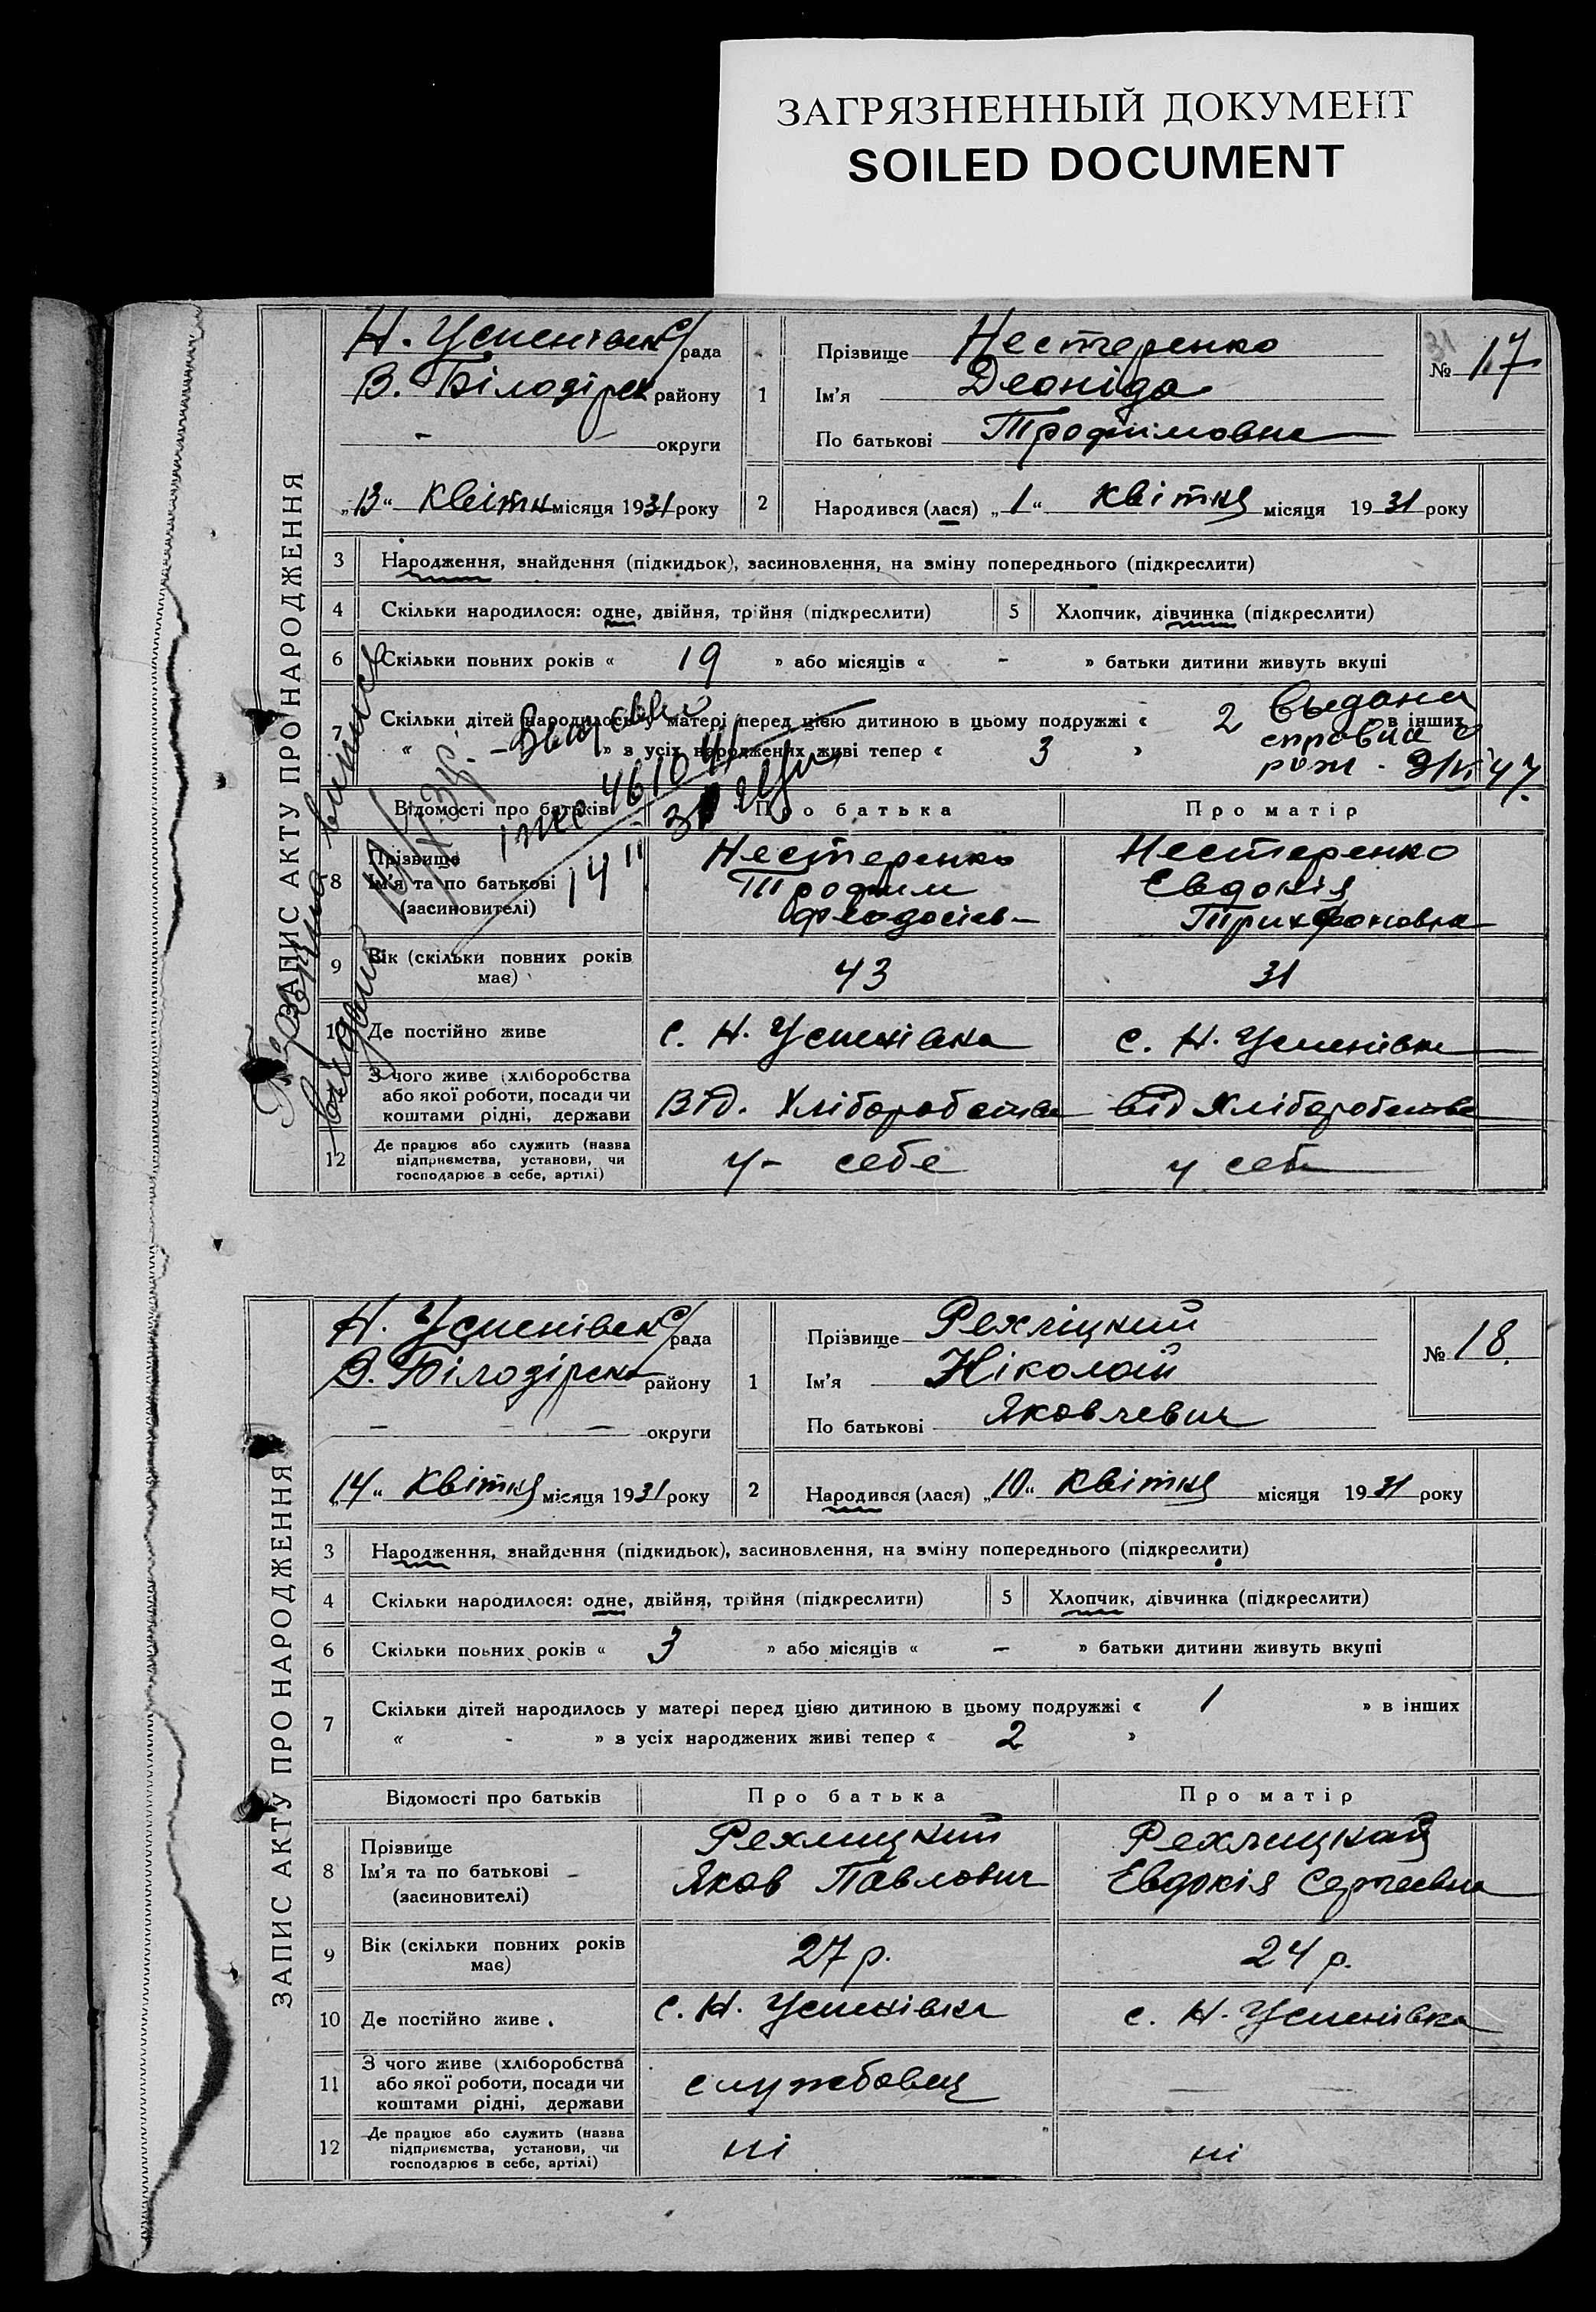 ЗАГРЯЗНЕННЫЙ ДОКУМЕНТ
SOILED DOCUMENT
ЗАПИС АКТУ ПРО НАРОДЖЕННЯ
Н. Успенівск с/рада
В. Білозірск району
- округи
„13“ Квітн місяця 1931 року
1 Прізвище Нестеренко
Ім'я Леоніда
По батькові Трофимовна
31
№ 17
2 Народився (лася) „1“ квітня місяця 1931 року
3 Народження, знайдення (підкидьок), засиновлення, на зміну попереднього (підкреслити)
4 Скільки народилося: одне, двійня, трійня (підкреслити) 5 Хлопчик, дівчинка (підкреслити)
6 Скільки повних років « 19 » або місяців « - » батьки дитини живуть вкупі
7 Скільки дітей народилось у матері перед цією дитиною в цьому подружжі « 2 в інших
« » з усіх народжених живі тепер « 3 »
Выдана
справка о
рож. 3/VI 47.
Відомості про батьків Про батька Про матір
8 Прізвище Нестеренко Нестеренко
Ім'я та по батькові Трофим Евдокія
(засиновителі) Феодосієв Трихфоновна
9 Вік (скільки повних років має) 43 31
10 Де постійно живе с. Н. Успенівка с. Н. Успенівка
З чого живе (хліборобства
або якої роботи, посади чи
коштами рідні, держави Від. Хліборобства від Хліборобства
12 Де працює або служить (назва
підприємства, установи, чи
господарює в себе, артілі) у - себе у себе
ЗАПИС АКТУ ПРО НАРОДЖЕННЯ
Н. Успенівск с/рада
В. Білозірск району
- - - округи
„14“ Квітня місяця 1931 року
1 Прізвище Рехліцкий
Ім'я Ніколай
По батькові Яковлевич
№ 18.
2 Народився (лася) „10“ Квітня місяця 1931 року
3 Народження, знайдення (підкидьок), засиновлення, на зміну попереднього (підкреслити)
4 Скільки народилося: одне, двійня, трійня (підкреслити) 5 Хлопчик, дівчинка (підкреслити)
6 Скільки повних років « 3 » або місяців « - » батьки дитини живуть вкупі
7 Скільки дітей народилось у матері перед цією дитиною в цьому подружжі « 1 » в інших
« - » з усіх народжених живі тепер « 2 »
Відомості про батьків Про батька Про матір
8 Прізвище Рехлицкий Рехлицкая
Ім'я та по батькові Яков Павлович Евдокія Сергеевна
(засиновителі)
9 Вік (скільки повних років має) 27 р. 24 р.
10 Де постійно живе. с. Н. Успенівка с. Н. Успенівка
11 З чого живе (хліборобства
або якої роботи, посади чи
коштами рідні, держави службовец —
12 Де працює або служить (назва
підприємства, установи, чи
господарює в себе, артілі) ні ні